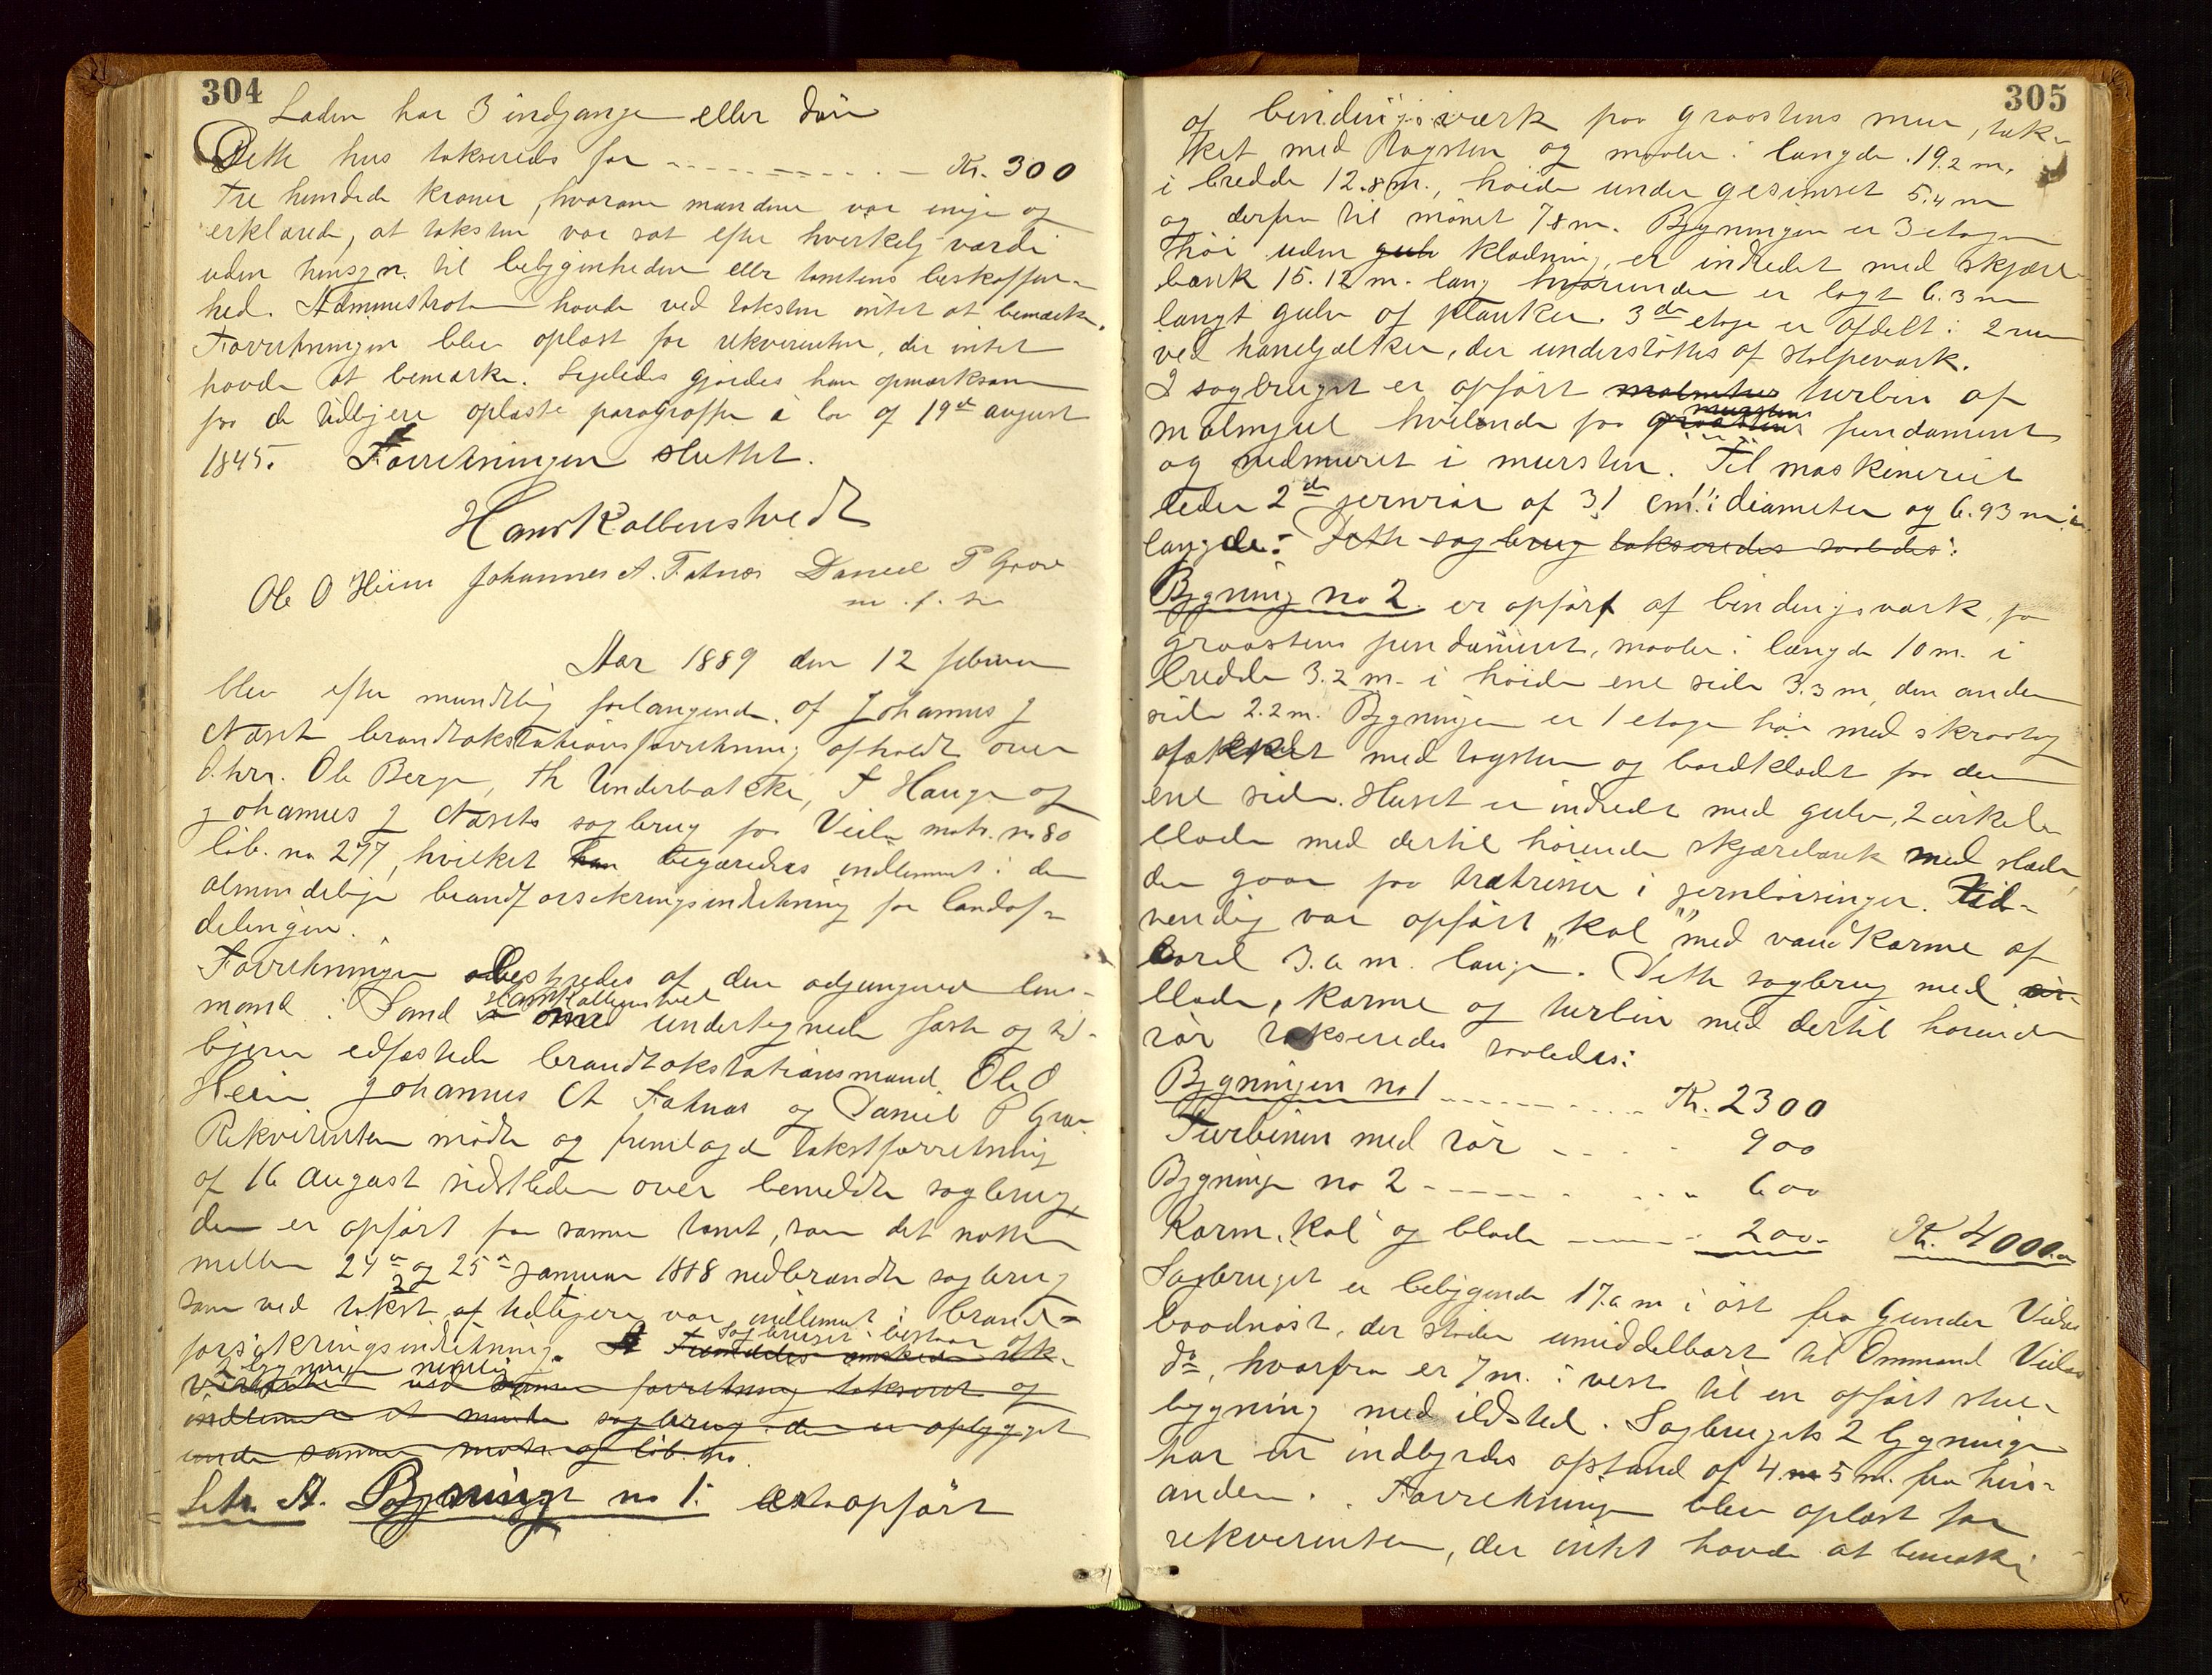 304
Laden har 3 indgange eller döre
Dette hus takseredes for Kr. 300
tre hundrede kroner, hvorom mændene var enige og
erklærede, at taksten var sat efter hverkelig værdi
uden hensyn til beliggenheden eller tomtens beskaffen-
hed. Administrator havde ved taksten intet at bemærke.
Forretningen blev oplæst for rekvirenten, der intet
havde at bemærke. Ligeledes gjordes han opmærksom
paa de tidligere oplæste paragraffer i lov af 19de august
1845. Forretningen sluttet.
Hans Kallenstvedt
Ole O Heim Johannes A. Fatnæs Daniel P Grave
m. f. p.
Aar 1889 den 12 februar
blev efter mundtlig forlangende af Johannes J
Næset brandtakstationsforretning afholdt over
O. hrr. Ole Berge, Th Underbakke, T Hauge og
Johannes J Næsets sagbrug paa Veila matr. no 80
löb. no 277, hvilket han begjæredes indlemmet i den
almindelige brandforsekringsindretning for landaf-
delingen.
Forretningen bestyredes af den adjungerede lens-
mand i Sand Hans Kallenstvedt undertegnede faste og tid-
ligere edfæstede brandtakstationsmænd Ole O
Heim Johannes A Fatnæs og Daniel P Grave
Rekvirenten mödte og fremlagde takstforretning
af 16 august sidstleden over bemeldte sagbrug,
der er opfört paa samme tomt, som det natten
mellem 24de og 25de januar 1888 nedbrændte sagbrug
som ved takst af tidligere var indlemmet i brand-
forsikringsindretning. Sagbruget bestaar af
2 bygninger nemlig
ved samme forretning takseret og
indlemmet et mindre sagbrug der er opbygget
under samme matr. og löb. no.
Litr. A. Bygning no 1. er opfört
305
af bindingsværk paa graastens mur, tæk-
ket med tagsten og maaler i længde 19.2 m.
i bredde 12.8 m., höide under gesimset 5.4 m
og derfra til mönet 7.8 m. Bygningen er 3 etager
höi uden gulv klædning, er indredet med skjære-
bænk 15.12 m. lang hvorunder er lagt 6.3 m
langt gulv af planker. 3de etage er afdelt i 2 rum
ved hanebjælker, der understöttes af stolpeværk.
I sagbruget er opfört turbin af
malmhjul hvilende paa graastens murstens fundament
og nedmuret i mursten. Til maskineriet
leder 2de jernrör af 31 cm. i diameter og 6.93 m. i
længde. Dette sagbrug takseredes saaledes:
Bygning no 2. er opfört af bindingsværk paa
graastens fundament, maaler i længde 10 m. i
bredde 3.2 m. i höide ene side 3.3 m, den anden
side 2.2 m. Bygningen er 1 etage höi med skraatag
tækket med tagsten og bordklædt paa den
ene side. Huset er indredet med gulv, 2 cirkel-
blade med dertil hörende skjærebænk med slæde,
der gaar paa trætrisser i jernbösninger. Ud-
vendig var opfört "kal" med vandkarme af
bord 3.6 m. lange. Dette sagbrug med
blade, karme og turbin med dertil hörende
rör takseredes saaledes:
Bygningen no 1 Kr. 2300
Turbinen med rör 900
Bygningen no 2 600
Karm, "kal" og blade 200 Kr. 4000.00
Sagbruget er beliggende 17.6 m i öst fra Gunder Veilas
baadnöst, der stöder umiddelbart til Ommund Veilas
do, hvorfra er 7 m. i vest til en opfört stue-
bygning med ildsted. Sagbrugets 2 bygninger
har en indbyrdes afstand af 4.5 m. fra hin-
anden. Forretningen blev oplæst for
rekvirenten, der intet havde at bemærke